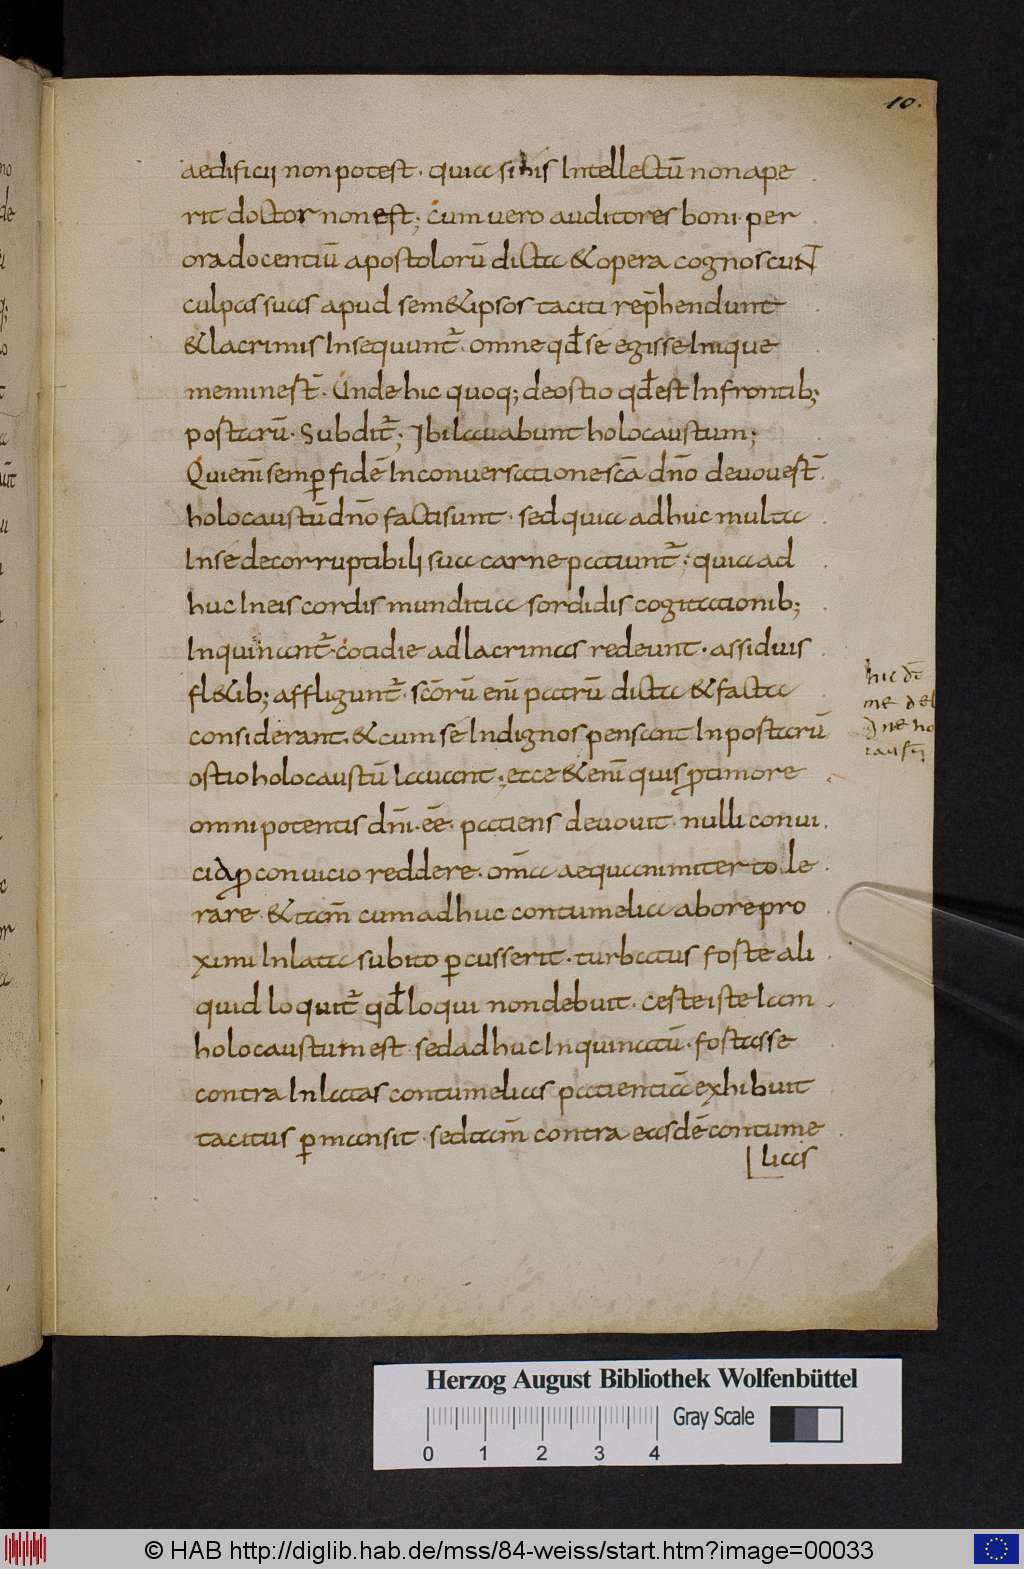 10.
aedificii non potest · quia si his Intellectū non ape
rit doctor non est ; Cum vero auditores boni · per
ora docentiū apostolorū dicta & opera cognoscuNT
culpas suas apud sem&ipsos taciti rep̄hendunt
& lacrimis Insequunt᷑ · omne qđ se egisse Inique
meminest̄ · Unde hic quoq; de ostio qđ est In frontib;
postarū · Subdit᷑ ; Ibi lavabunt holocaustum ;
Qui enī semꝑ fidē In conversatione scā dn̄o devovest̄
holocaustū dn̄o facti sunt · sed quia adhuc multa
In se de corruptibili sua carne patiunt᷑ · quia ad
huc In eis cordis munditia sordidis cogitationib;
Inquinant᷑ · cotidie ad lacrimas redeunt · assiduis
fl&ib; affligunt᷑ · scōrū enī patrū dicta & facta
considerant · & cum se Indignos pensant In postarū
ostio holocaustū lavant · ecce &enī quis ꝑ timore
omnipotentis dn̄i · eē patiens devovit · nulli convi
ciū ꝑ convicio reddere · om̄ia aequanimiter tolerare
rare · & tam̄ cum adhuc contumelia ab ore pro
ximi Inlata subito ꝑcusserit · turbatus foste ali
quid loquit᷑ qđ loqui non debuit · Ceste iste iam
holocaustum est · sed adhuc Inquinatū · fostasse
contra Inlatas contumelias patientiā exhibuit
tacitus ꝑmansit · sed tam̄ contra easdē contume
lias
hic dē
me del
dn̄e ho